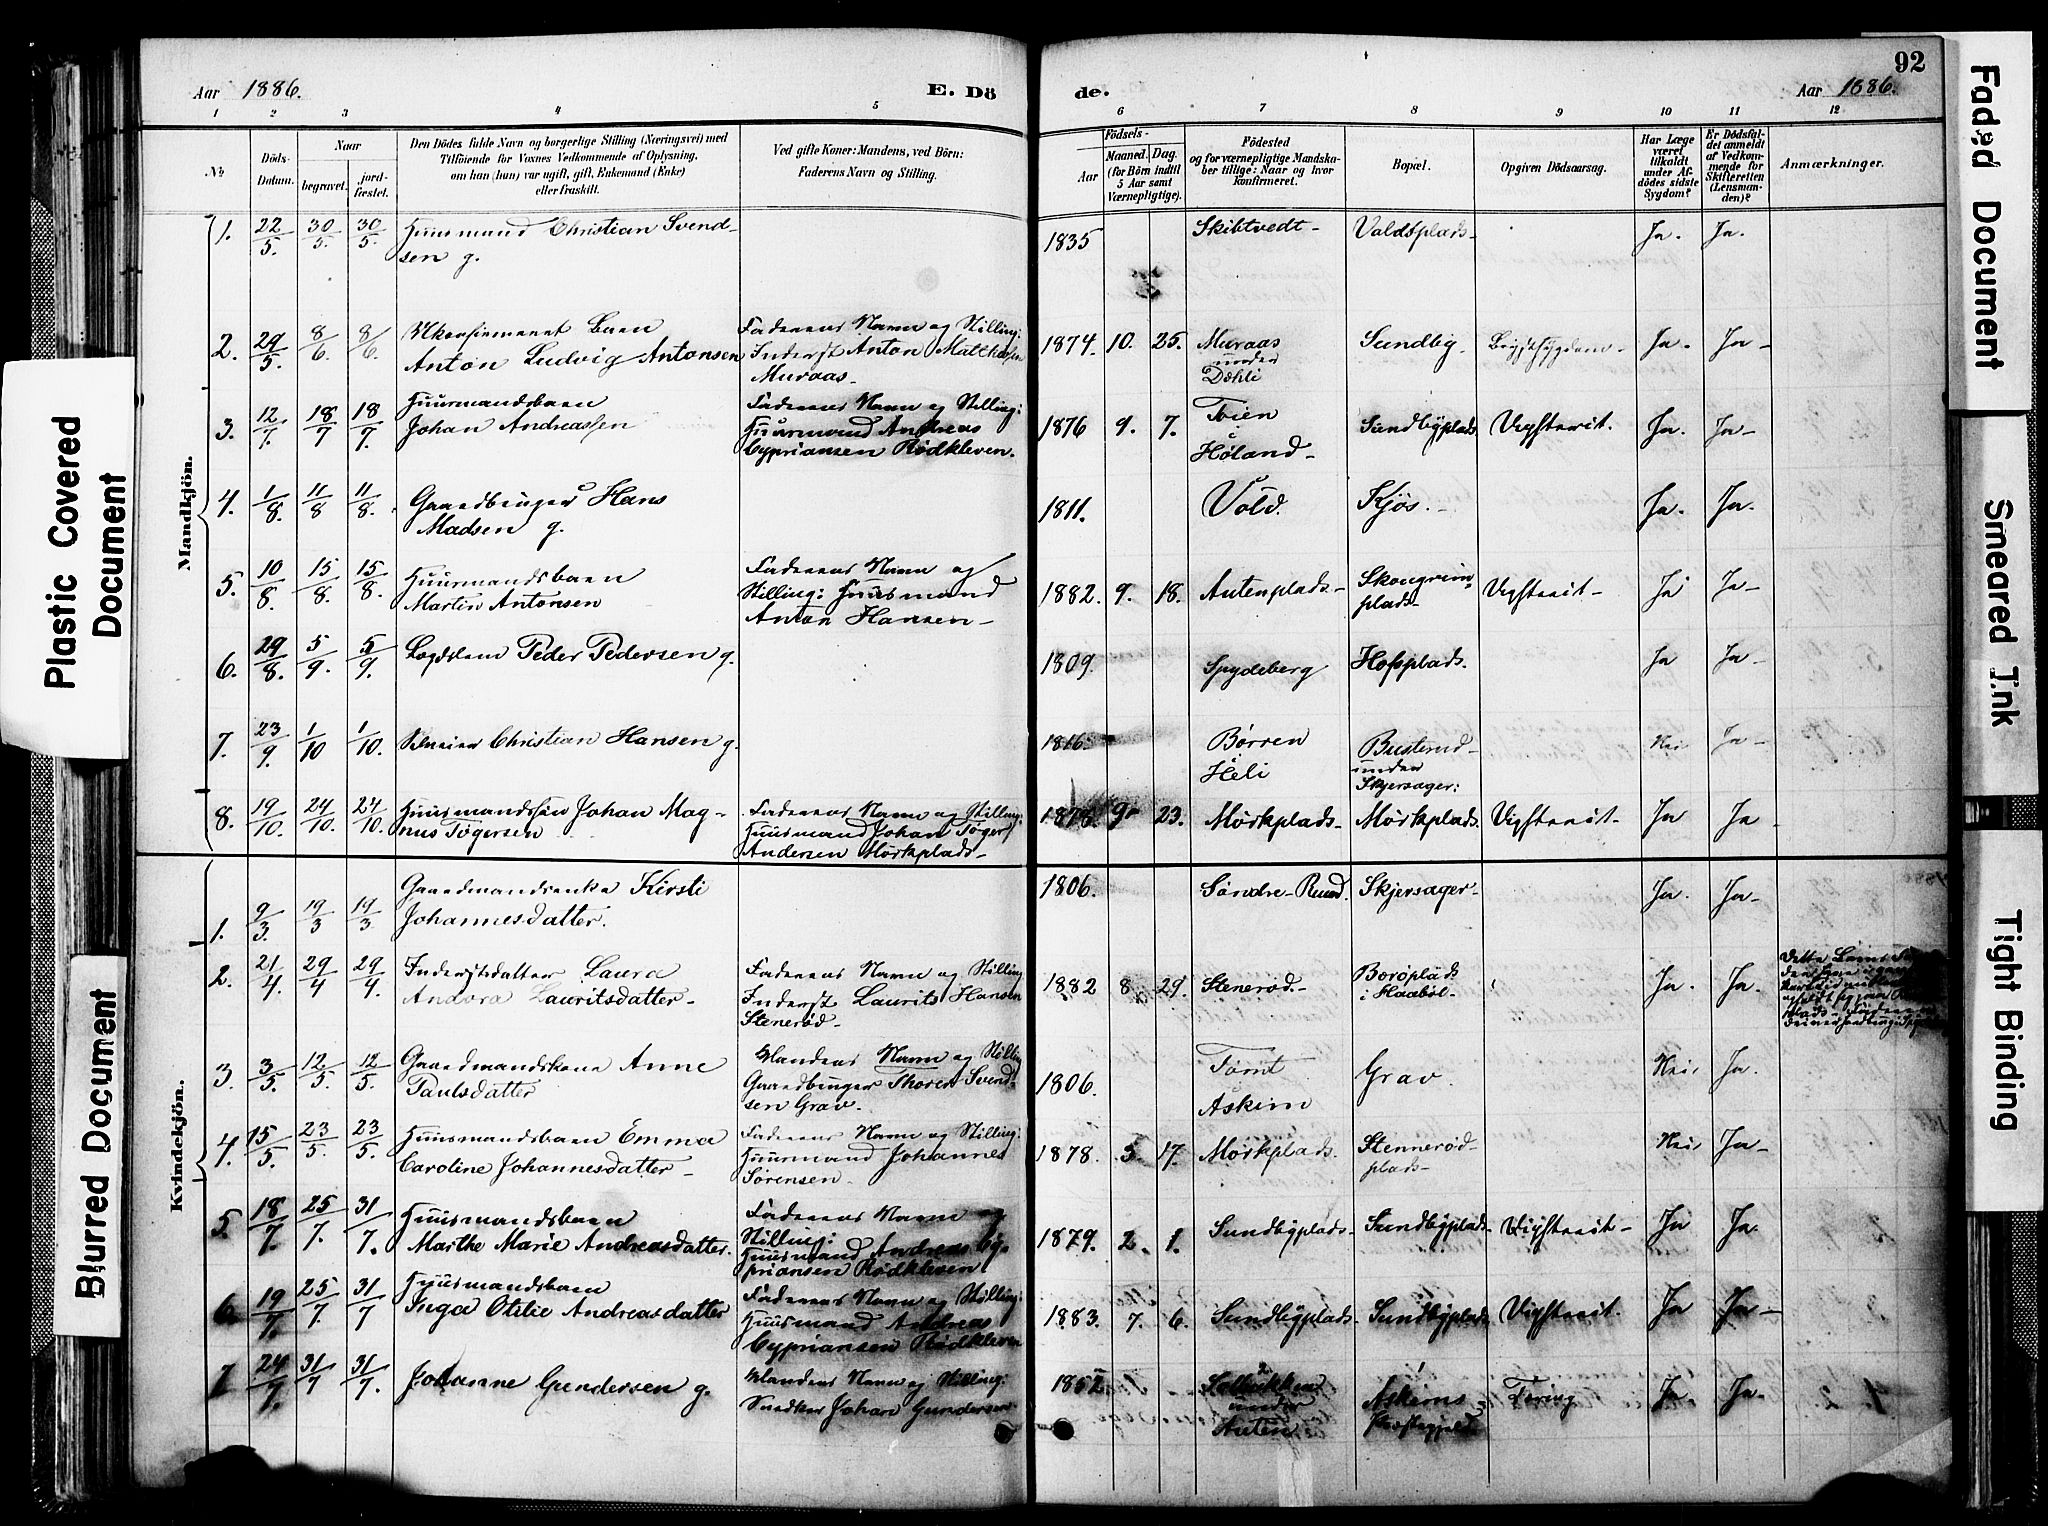 92
Aar 1886. E. Dö
de. Aar 1886.
1 2 3 4 5 6 7 8 9 10 11 12
No
Döds-Datum.
Naar
begravet.
jord-fæstet.
Den Dödes fulde Navn og borgerlige Stilling (Næringsvei) med
Tilföiende for Voxnes Vedkommende af Oplysning,
om han (hun) var ugift, gift, Enkemand (Enke)
eller fraskilt.
Ved gifte Koner: Mandens, ved Börn:
Faderens Navn og Stilling.
Födsels-
Aar
Maaned. Dag.
(for Börn indtil
5 Aar samt
Værnepligtige).
Födested
og for værnepligtige Mandska-
ber tillige: Naar og hvor
konfirmeret.
Bopæl.
Opgiven Dödsaarsag.
Har Læge
været
tilkaldt
under Af-
dödes sidste
Sygdom?
Er Dödsfal-
det anmeldt
af Vedkom-
mende for
Skifteretten
(Lensman-
den)?
Anmærkninger.
Mandkjön.
1. 22/5. 30/5. 30/5. Huusmand Christian Svend- 1835 Skibtvedt- Valdsplads- Ja. Ja.
sen g.
2. 29/5. 8/6 8/6 Ukonfirmeret Barn Faderens Navn og Stilling: 1874. 10. 25. Muraas Sundby. Brystsygdom- Ja. Ja-
Anton Ludvig Antonsen Inderst Anton Mathisen under
Muraas- Dæhli
3. 12/7. 18/7 18/7. Huusmandsbarn Faderens Navn og Stilling: 1876 9. 7. Toien Sundbyplads Ja. Ja-
Johan Andreassen Huusmand Andreas Høland-
Cypriansen Rødkleven.
4. 1/8. 11/8 11/8. Gaardbruger Hans 1811. Vold. Kjøs. Ja. Ja.
Madsen g.
5. 10/8. 15/8. 15/8. Huusmandsbarn Faderens Navn og 1882. 9. 18. Autenplads- Ja Ja-
Martin Antonsen Stilling: Huusmand plads-
Anton Hansen-
6. 29/8. 5/9. 5/9. Lægdslem Peder Pedersen g. 1809. Spydeberg Hofsplads. Ja Ja-
7. 23/9. 1/10 1/10. Christian Hansen g. 1816. Børren Busterud Nei Ja-
Heli under
Skjersager:
8. 19/10. 24/10. 24/10. Huusmandssøn Johan Mag- Faderens Navn og Stilling: 1878. 9 23. Mørkplads- Mørkplads. Ja Ja
nus Tøgersen Huusmand Johan Tøger
Andersen Mørkplads-
Kvindekjön.
1. 9/3. 19/3 19/3 Gaardmandsenke Kirsti 1806. Søndre-Ruud. Skjersager- Ja. Ja-
Johannesdatter.
2. 21/4. 29/4 29/4. Inderstsdatter Laura Faderens Navn og Stilling 1882 8 29. Stenerød- Ja. Ja.
Andora Lauritsdatter- Inderst Laurits Hansen
Stenerød-
3. 3/5. 12/5. 12/5. Gaardmandskone Anne Mandens Navn og Stilling 1806. Tømt Grav. Nei. Ja.
Paulsdatter Gaardbruger Thoren Svend- Askim
sen Grav.
4. 15/5. 23/5. 23/5. Huusmandsbarn Emma Faderens Navn og Stilling: 1878. 17. Mørkplads. Stennerød- Nei Ja-
Caroline Johannesdatter- Huusmand Johannes plads-
Sørensen-
5. 18/7. 25/7. 31/7. Huusmandsbarn Faderens Navn og 1879. 2. 1. Sundbyplads- Sundbyplads Ja Ja.
Marthe Marie Andreasdatter. Stilling:
Huusmand Andreas Cy-
priansen Rødkleven
6. 19/7. 25/7. 31/7 Huusmandsbarn Faderens Navn og Stilling: 1883. 7. 6. Sundbyplads. Sundbyplads Ja Ja-
Inga Otilie Andreasdatter Huusmand Andreas
Cypriansen Rødkleven
7 24/7. 31/7 31/7. Johanne Gundersen g. Mandens Navn og Stilling: Askims Tæring Ja Ja-
Snedker Johan Gundersen under Præstegjeld
Auten
Plastic Covered Document
Blurred Document
Faded Document
Smeared Ink
Tight Binding